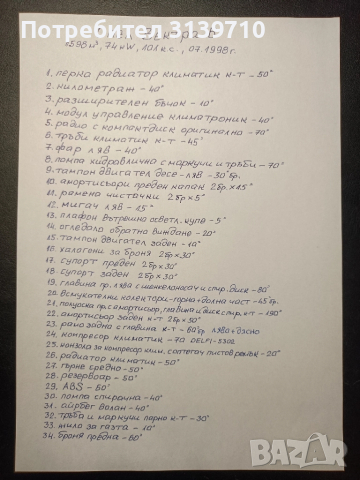 Посетете Поставчик 3139710
Опел Вектра Б
1598 м³, 74 кW, 101 к.с., 07.1998 г.
1. перна радиатор климатик к-т - 50°
2. километраж - 40°
3. разширителен бачок - 10°
4. модул управление климатроник - 40°
5. радио с компактдиск оригинално - 70°
6. тръби климатик к-т - 45°
7. фар ляв - 40°
8. помпа хидравлична с маркучи и тръби - 70°
9. тампон двигател десе-ляв - 30° бр.
10. амортисьори преден капак 2бр x 15°
11. рамена чистачки 2бр x 5°
12. мигач ляв - 15°
13. плафон вътрешно осветл. купе - 5°
14. огледало обратно виждане - 20°
15. тампон двигател заден - 10°
16. халогени за броня 2бр x 30°
17. супорт преден 2бр x 30°
18. супорт заден 2бр x 30°
19. главина пр. лява с шенкел носач и спир. диск - 80°
20. всмукателни колектори - горна + долна част - 45 бр.
21. полуоска пр. с амортисьор, главина и диск спир. к-т - 190°
22. амортисьор заден к-т 2бр x 30°
23. рамо задно с главина к-т - 60° бр ляво + дясно
24. компресор климатик - 70 DELPI-5302
26. радиатор климатик - 50°
27. гърне средно - 50°
28. резервоар - 50°
29. ABS - 50°
30. помпа спирачна - 40°
31. айрбег волан - 40°
32. тръба и маркучи парно к-т - 30°
33. жило за газта - 10°
34. броня предна - 60°
bazar